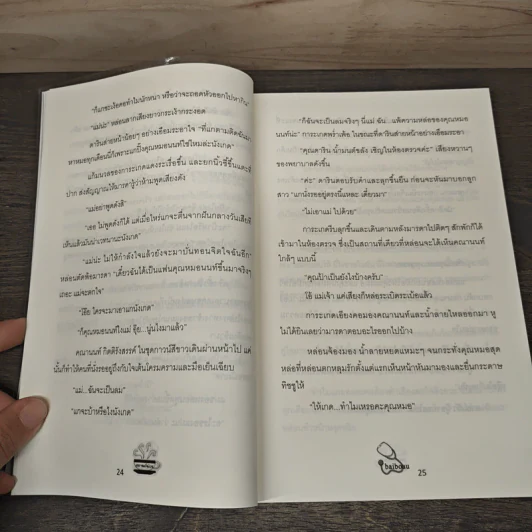 "ก็แกชะเง้อคอทำไมนักหนา หรือว่าจะถอดหัวออกไปหากิน"
"แม่น่ะ" หล่อนลากเสียงยาวกระเง้ากระงอด
ดารินส่ายหน้าน้อยๆ อย่างเอื่อมระอาใจ "ที่แกตามติดฉันมา
หาหมอทุกเดือนนี่ก็เพราะแกปิ๊งคุณหมอนนท์ใช่ไหมล่ะนังเกต"
แก้มนวลของการะเกดแดงระเรื่อขึ้น และยกนิ้วชี้ขึ้นแตะริม
ปาก ส่งสัญญาณให้มารดารู้ว่าห้ามพูดเสียงดัง
"แม่อย่าพูดดังสิ"
"เออ ไม่พูดดังก็ได้ แต่เมื่อไหร่แกจะตื่นจากฝันกลางวันเสียที
เห็นแล้วมันน่าเวทนานะนังเกต"
"แม่น่ะ ไม่ให้กำลังใจแล้วยังจะมาบั่นทอนจิตใจฉันอีก"
หล่อนตัดพ้อมารดา "เดี๋ยวฉันได้เป็นแฟนคุณหมอนนท์ขึ้นมาจริงๆ
เถอะ แม่จะตกใจ"
"โอ๊ย ใครจะมาเอาแกนังเกต"
"ก็คุณหมอนนท์ไงแม่ อุ๊ย...นู่นไงมาแล้ว"
คณานนท์ กิตติรังสรรค์ ในชุดกาวน์สีขาวเดินผ่านหน้าไป แค่
นั้นก็ทำให้คนที่นั่งรออยู่ถึงกับใจเต้นโครมครามและมือเย็นเฉียบ
"แม่...ฉันจะเป็นลม"
"แกจะบ้าหรือไงนังเกต"
24
"ก็ฉันจะเป็นลมจริงๆ นี่แม่ ฉัน...แพ้ความหล่อของคุณหมอ
นนท์น่ะ" การะเกดพร่ำเพ้อ ในขณะที่ดารินส่ายหน้าอย่างเอื่อมระอา
"คุณดาริน น้ำมนต์ขลัง เชิญในห้องตรวจค่ะ" เสียงหวานๆ
ของพยาบาลดังขึ้น
"ค่ะ" ดารินตอบรับคำและลุกขึ้นยืน ก่อนจะหันมาบอกลูก
สาว "แกนั่งรออยู่ตรงนี้แหละ เดี๋ยวมา"
"ไม่เอาแม่ ไปด้วย"
การะเกดรีบลุกขึ้นและเดินตามหลังมารดาไปติดๆ สักพักก็ได้
เข้ามาในห้องตรวจ ซึ่งเป็นสถานที่เดียวที่หล่อนจะได้เห็นคณานนท์
ใกล้ๆ แบบนี้
"คุณป้าเป็นยังไงบ้างครับ"
โอ๊ แม่เจ้า แค่เสียงก็หล่อระเบิดระเบ้อแล้ว
การะเกดเอียงคอมองคณานนท์และน้ำลายไหลออกมา หู
ไม่ได้ยินเลยว่ามารดาตอบอะไรออกไปบ้าง
หล่อนจ้องมอง น้ำลายหยดแหมะๆ จนกระทั่งคุณหมอสุด
หล่อที่หล่อนตกหลุมรักตั้งแต่แรกเห็นหน้าหันมามองและยื่นกระดาษ
ทิชชูให้
"ให้เกด...ทำไมเหรอคะคุณหมอ"
baiboau
25